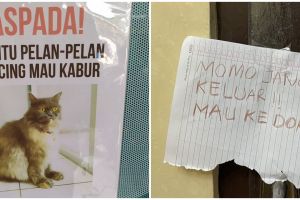 ASPADA!
NTU PELAN-PELAN
CING MAU KABUR
MOMO JANG
KELUAR !!
MAU KE DO